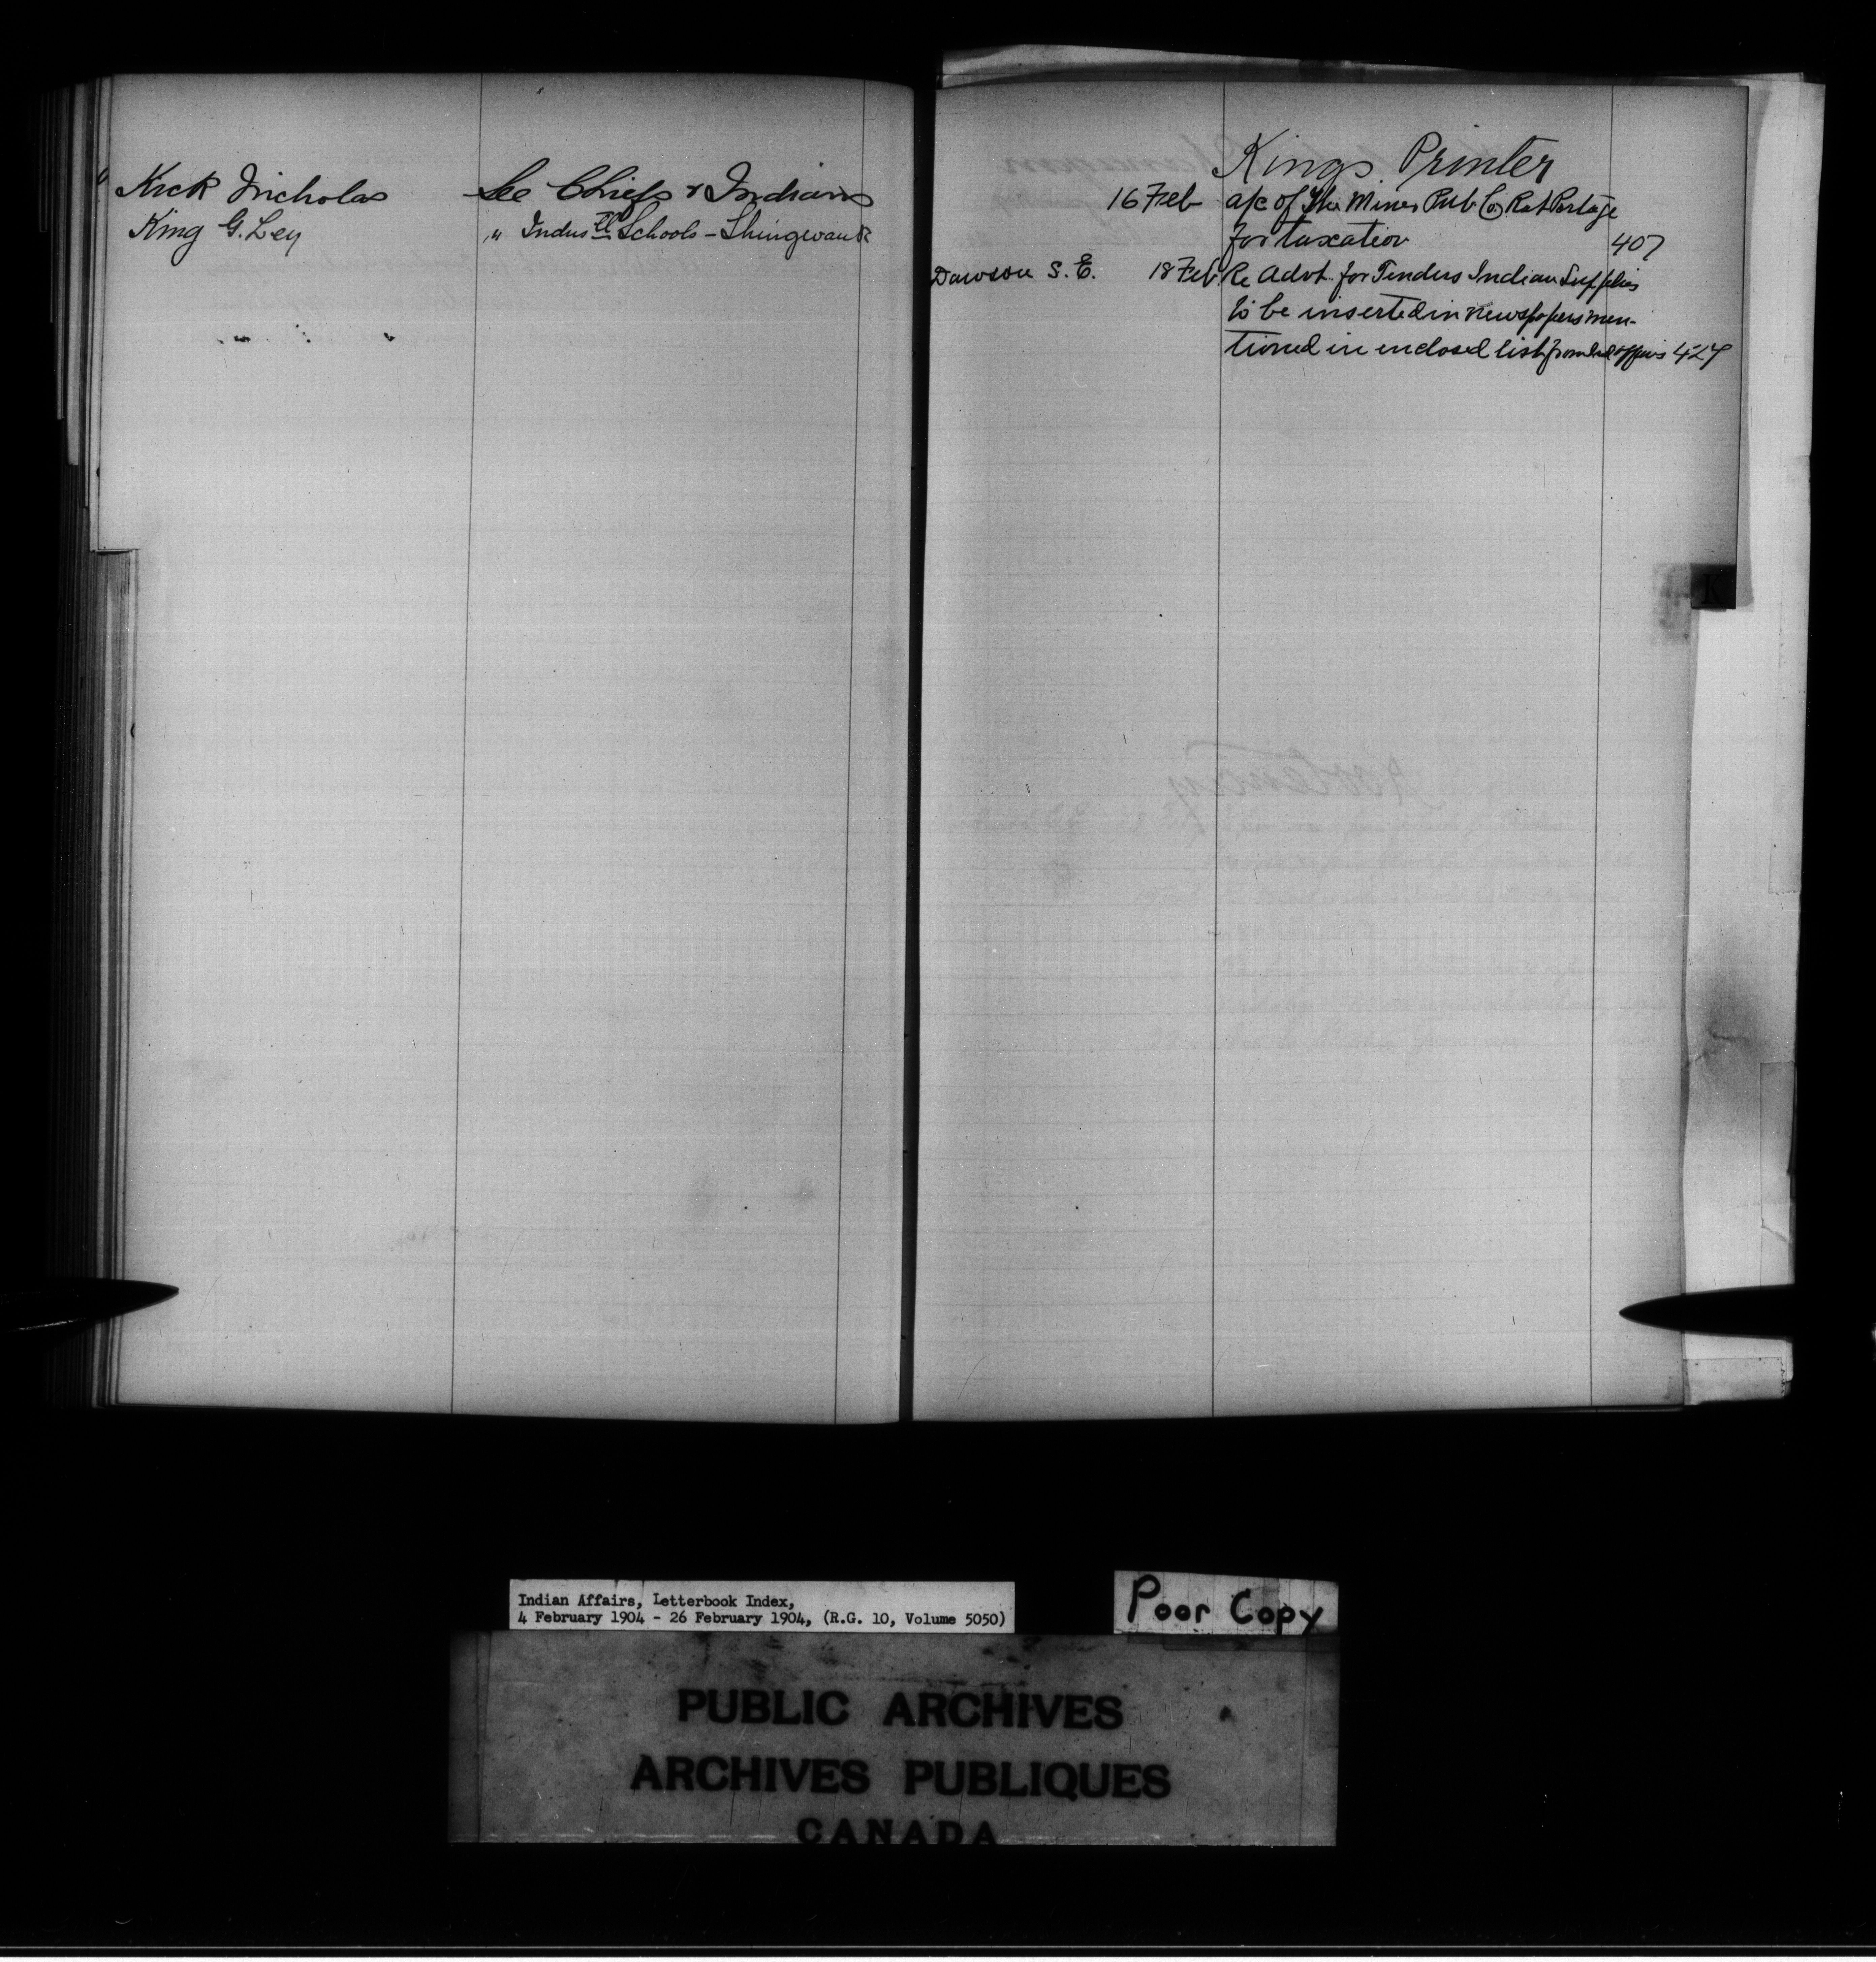 Kick Nicholas See Chiefs & Indians
King G. Ley " Indus^tl Schools - Shingwauk
Kings Printer
16 Feb a/c of The Miner Pub Co. Rat Portage
for taxation 407
Dawson S. E. 18 Feb. Re Advt. for Tenders Indian Supplies
to be inserted in newspapers men-
tioned in enclosed list from Ind Affairs 427
K
Indian Affairs, Letterbook Index,
4 February 1904 - 26 February 1904, (R.G. 10, Volume 5050)
Poor Copy
PUBLIC ARCHIVES
ARCHIVES PUBLIQUES
CANADA